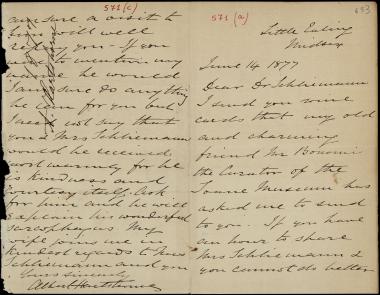 571(a)
653
Little Ealing
Middsx
June 14 1877
Dear Dr Schliemann
I send you some
cards that my old
and charming
friend Mr Bonomi
the Curator of the
Soane Museum has
asked me to send
to you. If you have
an hour to spare
Mrs Schliemann &
you cannot do better
571(c)
am sure a visit to
him will well
repay you - If you
to mention my
name he would
I am sure do anything
he can for you but
I need not say that
you & Mrs Schliemann
would be received
most warmly for he
is kindness and
courtesy itself. Ask
for him and he will
explain his wonderful
sarcophagus My
wife joins me in
kindest regards to Mrs
Schliemann and you
Yours sincerely
Albert Hartshorne